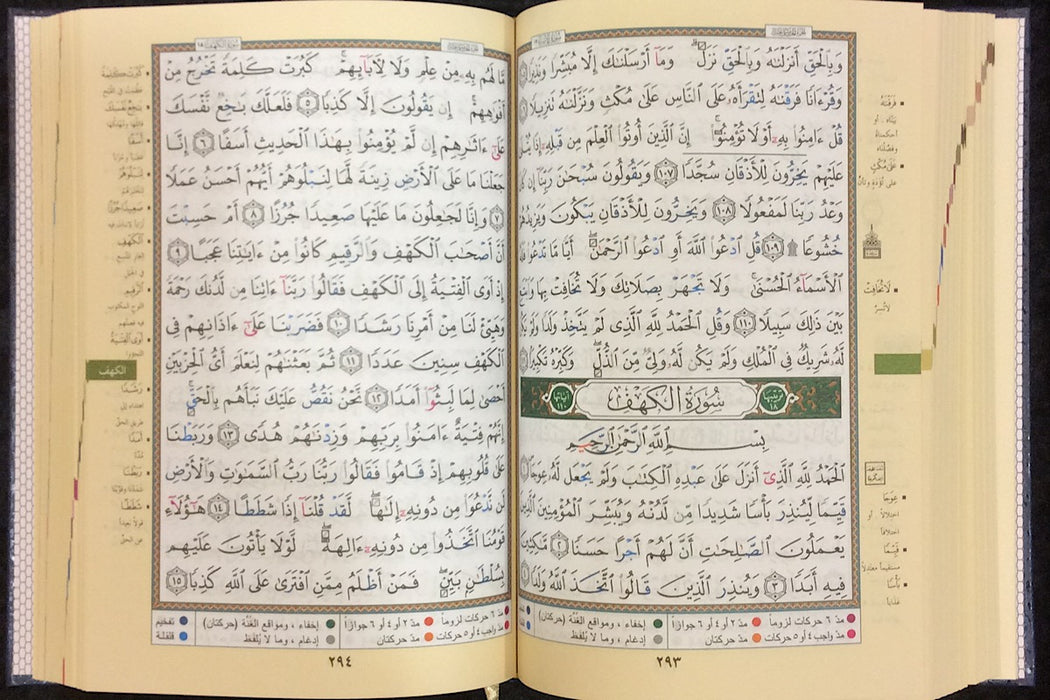 وَبِالْحَقِّ أَنزَلْنَاهُ وَبِالْحَقِّ نَزَلَ ۗ وَمَا أَرْسَلْنَاكَ إِلَّا مُبَشِّرًا وَنَذِيرًا
وَقُرْءَانًا فَرَقْنَاهُ لِتَقْرَأَهُ عَلَى النَّاسِ عَلَىٰ مُكْثٍ وَنَزَّلْنَاهُ تَنزِيلًا
قُلْ ءَامِنُوا بِهِ أَوْ لَا تُؤْمِنُوا ۚ إِنَّ الَّذِينَ أُوتُوا الْعِلْمَ مِن قَبْلِهِ إِذَا يُتْلَىٰ
عَلَيْهِمْ يَخِرُّونَ لِلْأَذْقَانِ سُجَّدًا ١٠٧ وَيَقُولُونَ سُبْحَانَ رَبِّنَا إِن كَانَ
وَعْدُ رَبِّنَا لَمَفْعُولًا ١٠٨ وَيَخِرُّونَ لِلْأَذْقَانِ يَبْكُونَ وَيَزِيدُهُمْ
خُشُوعًا ۩ ١٠٩ قُلِ ادْعُوا اللَّهَ أَوِ ادْعُوا الرَّحْمَٰنَ ۖ أَيًّا مَا تَدْعُوا فَلَهُ
الْأَسْمَاءُ الْحُسْنَىٰ ۚ وَلَا تَجْهَرْ بِصَلَاتِكَ وَلَا تُخَافِتْ بِهَا وَابْتَغِ
بَيْنَ ذَٰلِكَ سَبِيلًا ١١٠ وَقُلِ الْحَمْدُ لِلَّهِ الَّذِي لَمْ يَتَّخِذْ وَلَدًا وَلَمْ يَكُن
لَّهُ شَرِيكٌ فِي الْمُلْكِ وَلَمْ يَكُن لَّهُ وَلِيٌّ مِّنَ الذُّلِّ ۖ وَكَبِّرْهُ تَكْبِيرًا
ترتيبها ١٨ سُورَةُ الْكَهْفِ آياتها ١١٠
بِسْمِ اللَّهِ الرَّحْمَٰنِ الرَّحِيمِ
الْحَمْدُ لِلَّهِ الَّذِي أَنزَلَ عَلَىٰ عَبْدِهِ الْكِتَابَ وَلَمْ يَجْعَل لَّهُ عِوَجًا
قَيِّمًا لِّيُنذِرَ بَأْسًا شَدِيدًا مِّن لَّدُنْهُ وَيُبَشِّرَ الْمُؤْمِنِينَ الَّذِينَ
يَعْمَلُونَ الصَّالِحَاتِ أَنَّ لَهُمْ أَجْرًا حَسَنًا ٢ مَّاكِثِينَ
فِيهِ أَبَدًا ٣ وَيُنذِرَ الَّذِينَ قَالُوا اتَّخَذَ اللَّهُ وَلَدًا
مدّ ٦ حركات لزوماً مدّ ٢ أو ٤ أو ٦ جوازاً إخفاء ، ومواقع الغُنَّة (حركتان)
مدّ واجب ٤ أو ٥ حركات مدّ حركتان إدغام ، وما لا يُلفَظ
٢٩٣
فَرَقْنَاهُ
بيّنّاه . أو
أحكمناه
وفصّلناه
عَلَىٰ مُكْثٍ
على تُؤَدَةٍ وتأنٍّ
لَا تُخَافِتْ
لا تُسِرَّ
عِوَجًا
اختلالاً . أو
اختلافاً
قَيِّمًا
مستقيماً معتدلاً
بَأْسًا
عَذاباً
مَّا لَهُم بِهِ مِنْ عِلْمٍ وَلَا لِآبَائِهِمْ ۚ كَبُرَتْ كَلِمَةً تَخْرُجُ مِنْ
أَفْوَاهِهِمْ ۚ إِن يَقُولُونَ إِلَّا كَذِبًا ٥ فَلَعَلَّكَ بَاخِعٌ نَّفْسَكَ
عَلَىٰ ءَاثَارِهِمْ إِن لَّمْ يُؤْمِنُوا بِهَٰذَا الْحَدِيثِ أَسَفًا ٦ إِنَّا
جَعَلْنَا مَا عَلَى الْأَرْضِ زِينَةً لَّهَا لِنَبْلُوَهُمْ أَيُّهُمْ أَحْسَنُ عَمَلًا
٧ وَإِنَّا لَجَاعِلُونَ مَا عَلَيْهَا صَعِيدًا جُرُزًا ٨ أَمْ حَسِبْتَ
أَنَّ أَصْحَابَ الْكَهْفِ وَالرَّقِيمِ كَانُوا مِنْ ءَايَاتِنَا عَجَبًا ٩
إِذْ أَوَى الْفِتْيَةُ إِلَى الْكَهْفِ فَقَالُوا رَبَّنَا ءَاتِنَا مِن لَّدُنكَ رَحْمَةً
وَهَيِّئْ لَنَا مِنْ أَمْرِنَا رَشَدًا ١٠ فَضَرَبْنَا عَلَىٰ ءَاذَانِهِمْ فِي
الْكَهْفِ سِنِينَ عَدَدًا ١١ ثُمَّ بَعَثْنَاهُمْ لِنَعْلَمَ أَيُّ الْحِزْبَيْنِ
أَحْصَىٰ لِمَا لَبِثُوا أَمَدًا ١٢ نَّحْنُ نَقُصُّ عَلَيْكَ نَبَأَهُم بِالْحَقِّ ۚ
إِنَّهُمْ فِتْيَةٌ ءَامَنُوا بِرَبِّهِمْ وَزِدْنَاهُمْ هُدًى ١٣ وَرَبَطْنَا
عَلَىٰ قُلُوبِهِمْ إِذْ قَامُوا فَقَالُوا رَبُّنَا رَبُّ السَّمَاوَاتِ وَالْأَرْضِ
لَن نَّدْعُوَا مِن دُونِهِ إِلَٰهًا ۖ لَّقَدْ قُلْنَا إِذًا شَطَطًا ١٤ هَٰؤُلَاءِ
قَوْمُنَا اتَّخَذُوا مِن دُونِهِ ءَالِهَةً ۖ لَّوْلَا يَأْتُونَ عَلَيْهِم
بِسُلْطَانٍ بَيِّنٍ ۖ فَمَنْ أَظْلَمُ مِمَّنِ افْتَرَىٰ عَلَى اللَّهِ كَذِبًا ١٥
مدّ ٦ حركات لزوماً مدّ ٢ أو ٤ أو ٦ جوازاً إخفاء ، ومواقع الغُنَّة (حركتان) تفخيم
مدّ واجب ٤ أو ٥ حركات مدّ حركتان إدغام ، وما لا يُلفَظ قلقلة
٢٩٤
كَبُرَتْ كَلِمَةً
بَاخِعٌ نَّفْسَكَ
أَسَفًا
لِنَبْلُوَهُمْ
صَعِيدًا جُرُزًا
الْكَهْفِ
الرَّقِيمِ
أَوَى الْفِتْيَةُ
الكهف
رَشَدًا
أَمَدًا
رَبَطْنَا
شَطَطًا